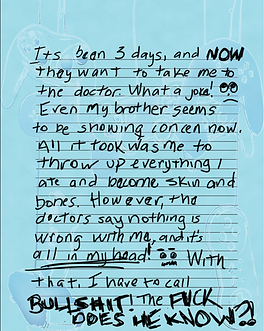 Its been 3 days, and NOW
they want to take me to
the doctor. What a joke!
Even my brother seems
to be showing concen now.
All it took was me to
throw up everything I
ate and become skin and
bones. However, the
doctors say nothing is
wrong with me, and it's
all in my head! With
that, I have to call
BULLSHIT! The FUCK
DOES HE KNOW?!